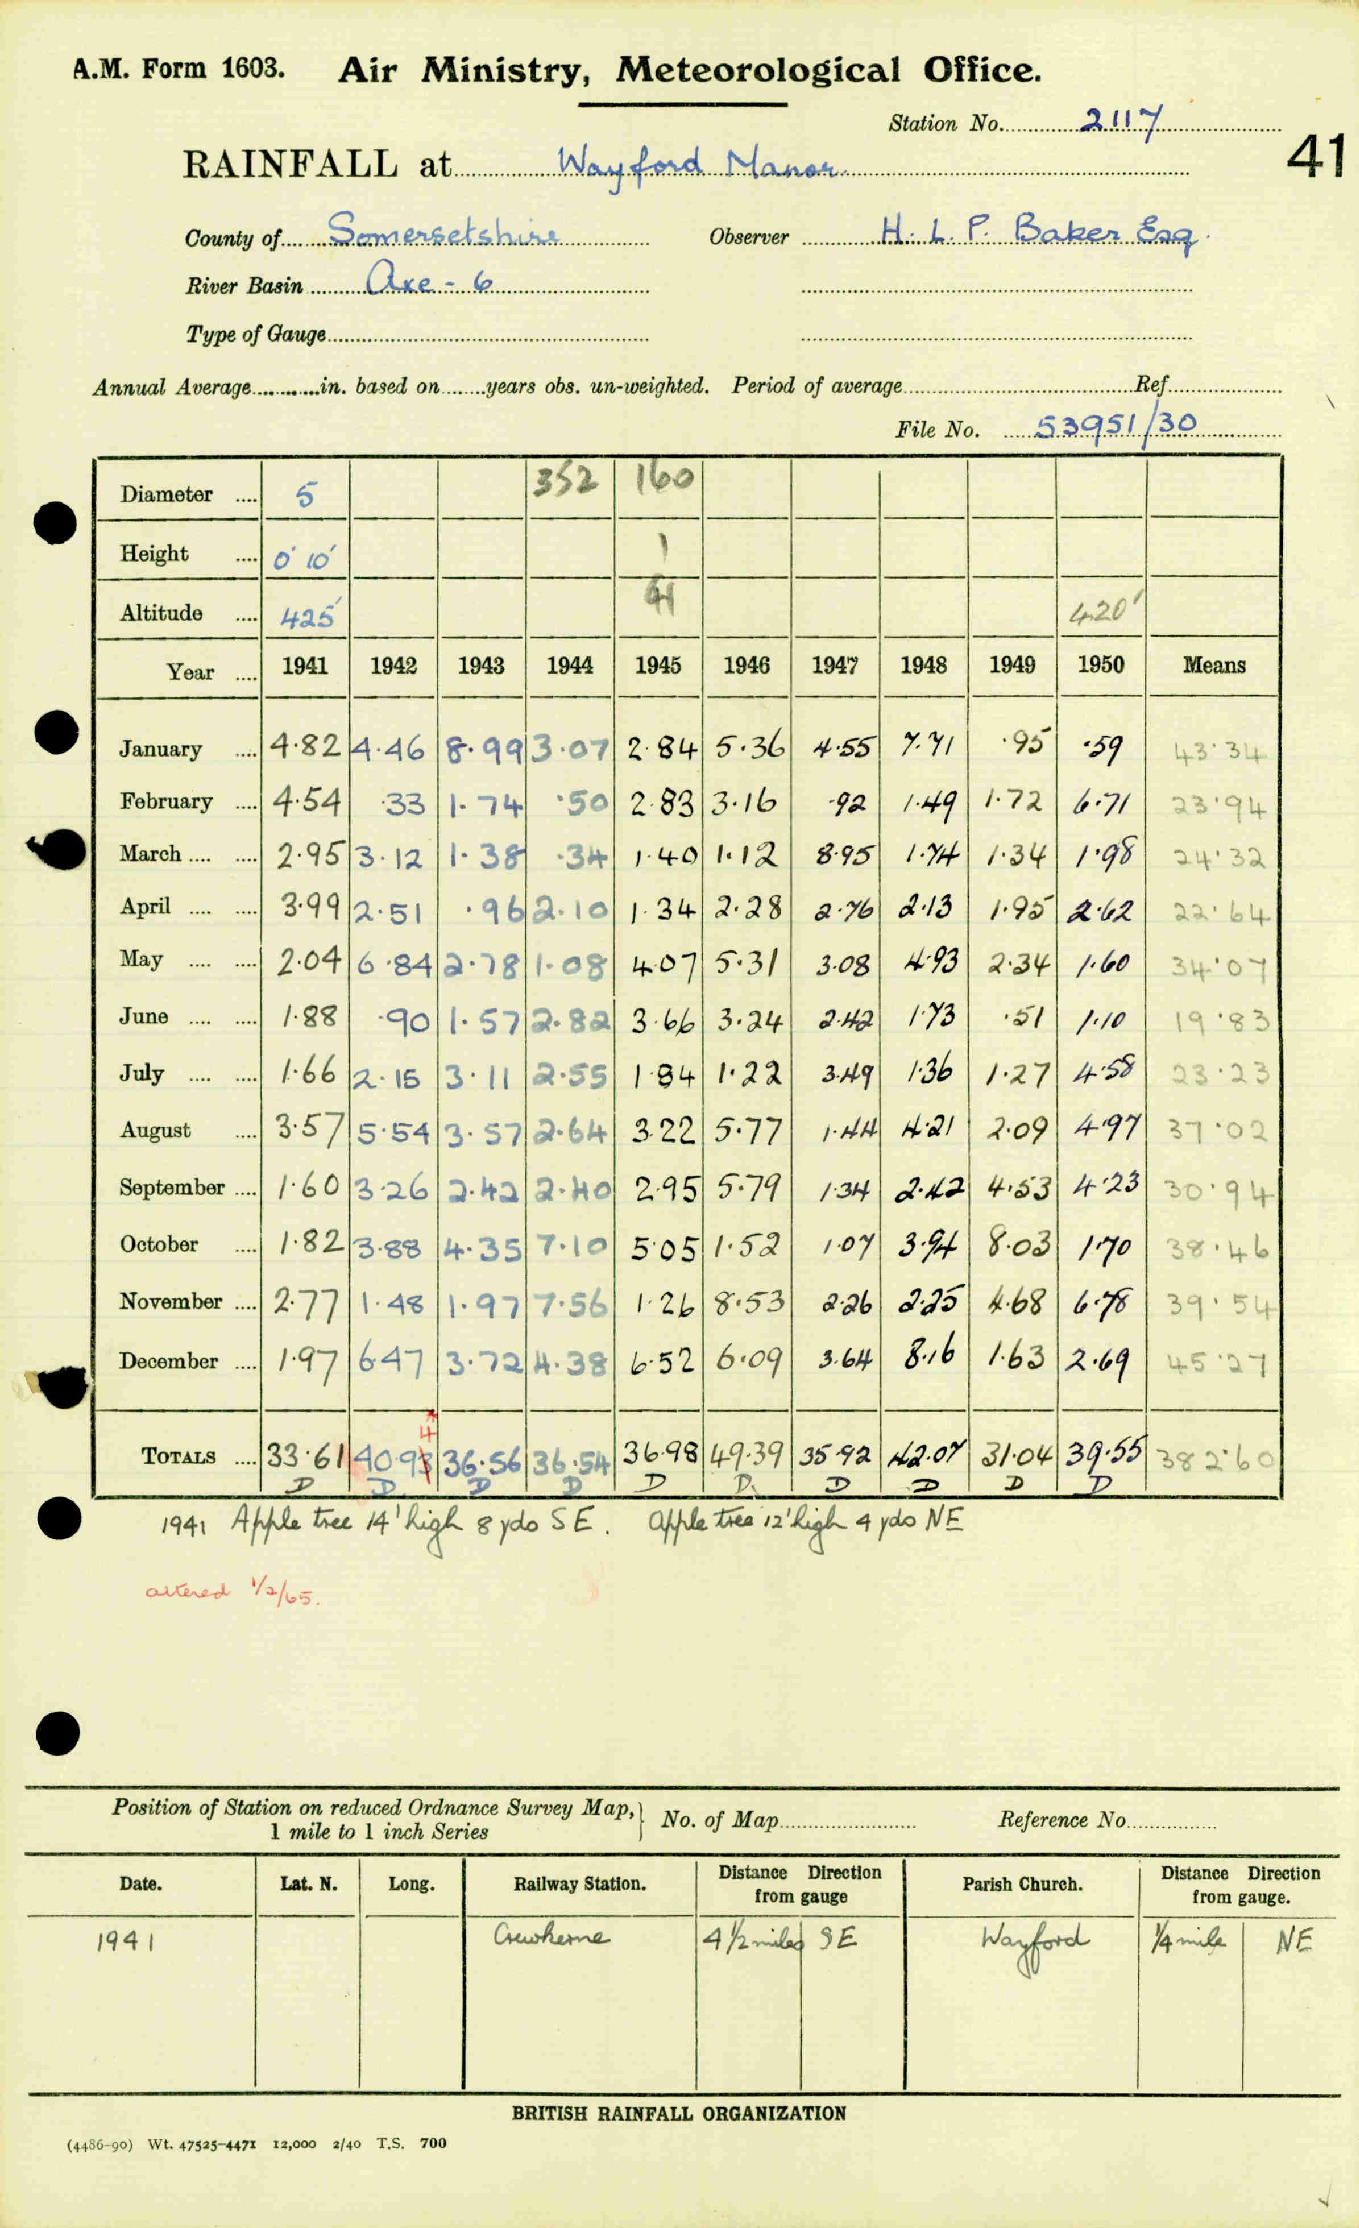 A.M. Form 1603. Air Ministry, Meteorological Office.
Station No. 2117
41
RAINFALL at Wayford Manor.
County of Somersetshire Observer H. L. P. Baker Esq.
River Basin Axe - 6
Type of Gauge
Annual Average in. based on years obs. un-weighted. Period of average Ref.
File No. 53951/30
Diameter .... 5 352 160
Height .... 0' 10" 1
Altitude .... 425' 41 420'
Year .... 1941 1942 1943 1944 1945 1946 1947 1948 1949 1950 Means
January .... 4.82 4.46 8.99 3.07 2.84 5.36 4.55 7.71 .95 .59 43.34
February .... 4.54 .33 1.74 .50 2.83 3.16 .92 1.49 1.72 6.71 23.94
March .... .... 2.95 3.12 1.38 .34 1.40 1.12 8.95 1.74 1.34 1.98 24.32
April .... .... 3.99 2.51 .96 2.10 1.34 2.28 2.76 2.13 1.95 2.62 22.64
May .... .... 2.04 6.84 2.78 1.08 4.07 5.31 3.08 4.93 2.34 1.60 34.07
June .... .... 1.88 .90 1.57 2.82 3.66 3.24 2.42 1.73 .51 1.10 19.83
July .... .... 1.66 2.15 3.11 2.55 1.84 1.22 3.49 1.36 1.27 4.58 23.23
August .... 3.57 5.54 3.57 2.64 3.22 5.77 1.44 4.21 2.09 4.97 37.02
September .... 1.60 3.26 2.42 2.40 2.95 5.79 1.34 2.42 4.53 4.23 30.94
October .... 1.82 3.88 4.35 7.10 5.05 1.52 1.07 3.94 8.03 1.70 38.46
November .... 2.77 1.48 1.97 7.56 1.26 8.53 2.26 2.25 4.68 6.78 39.54
December .... 1.97 6.47 3.72 4.38 6.52 6.09 3.64 8.16 1.63 2.69 45.27
4*
TOTALS .... 33.61 40.93 36.56 36.54 36.98 49.39 35.92 42.07 31.04 39.55 382.60
D D D D D D. D D D D
1941 Apple tree 14' high 8 yds SE. apple tree 12' high 4 yds NE
altered 1/2/65.
Position of Station on reduced Ordnance Survey Map, } No. of Map Reference No.
1 mile to 1 inch Series
Date. Lat. N. Long. Railway Station. Distance Direction from gauge Parish Church. Distance Direction from gauge.
1941 Crewkerne 4 1/2 miles SE Wayford 1/4 mile NE
BRITISH RAINFALL ORGANIZATION
(4486-90) Wt. 47525-4471 12,000 2/40 T.S. 700